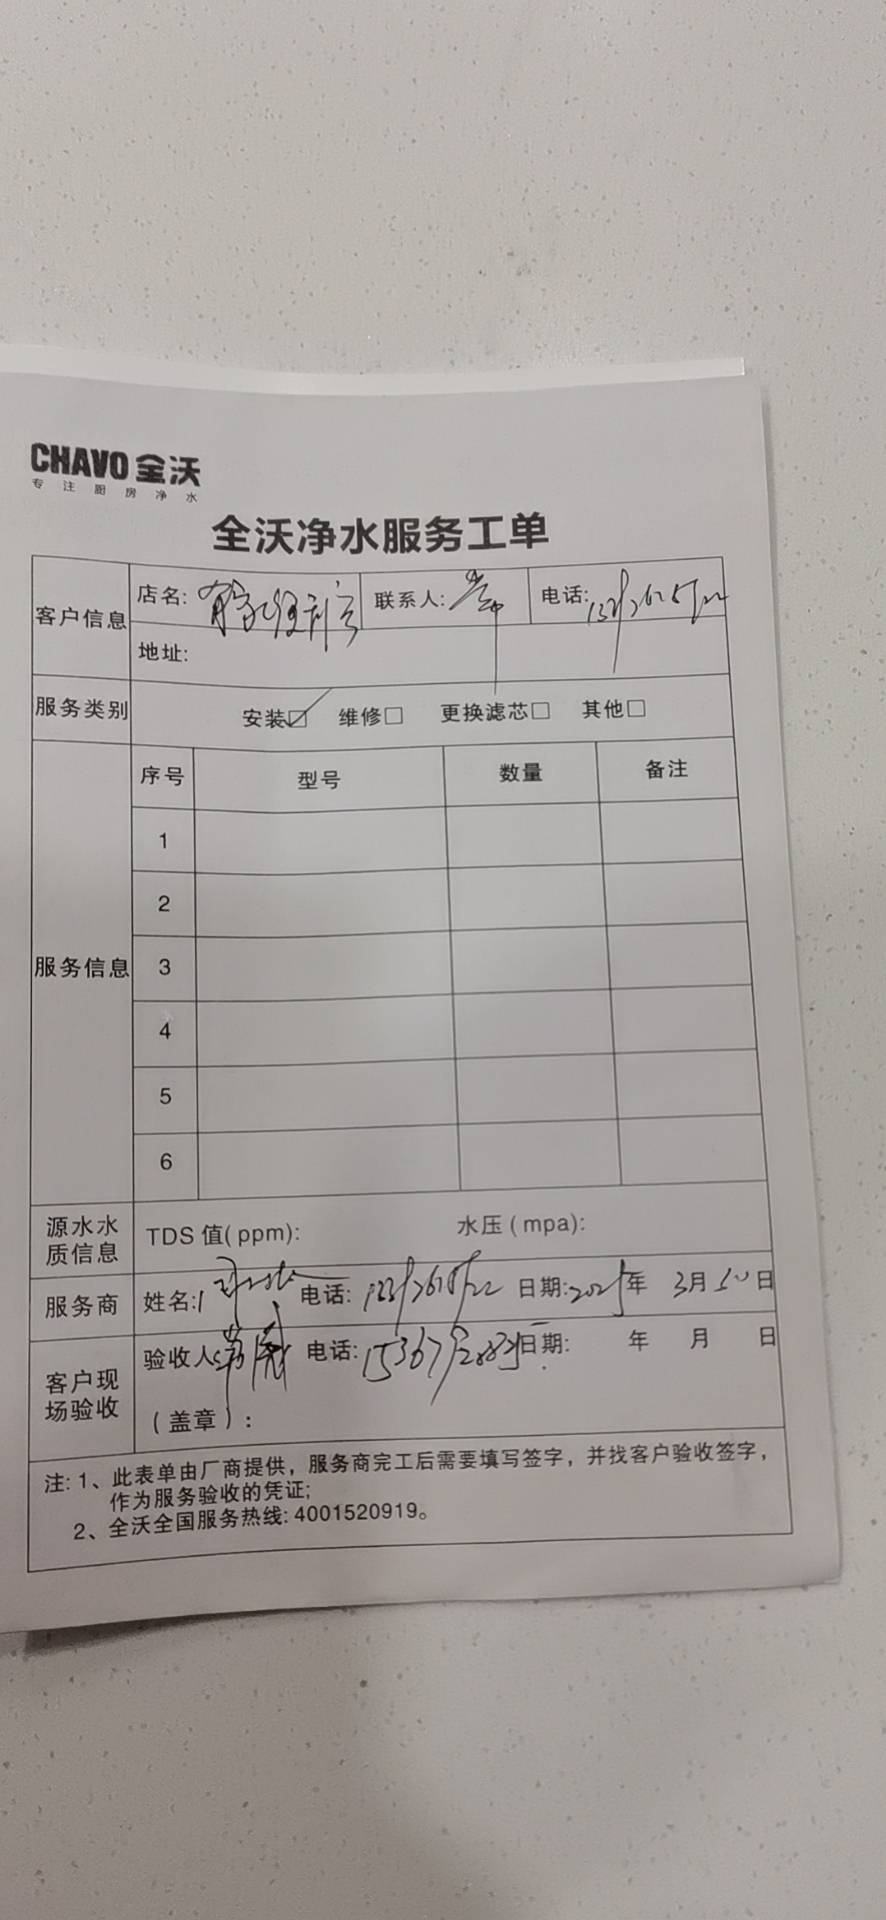 CHAVO 全沃
专注厨房净水
全沃净水服务工单
客户信息 店名: 联系人: 电话:
地址:
服务类别 安装☑ 维修□ 更换滤芯□ 其他□
服务信息 序号 型号 数量 备注
1
2
3
4
5
6
源水水质信息 TDS 值(ppm): 水压(mpa):
服务商 姓名: 电话: 日期: 2025年 3月 日
客户现场验收 验收人: 电话: 日期: 年 月 日
(盖章):
注: 1、此表单由厂商提供，服务商完工后需要填写签字，并找客户验收签字，
作为服务验收的凭证;
2、全沃全国服务热线: 4001520919。